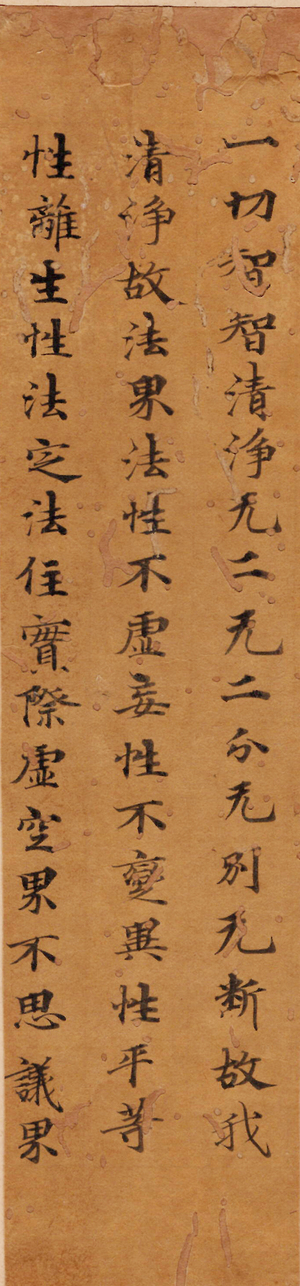 一切智智清淨无二无二分无別无断故我
清淨故法界法性不虛妄性不變異性平等
性離生性法定法住實際虛空界不思議界